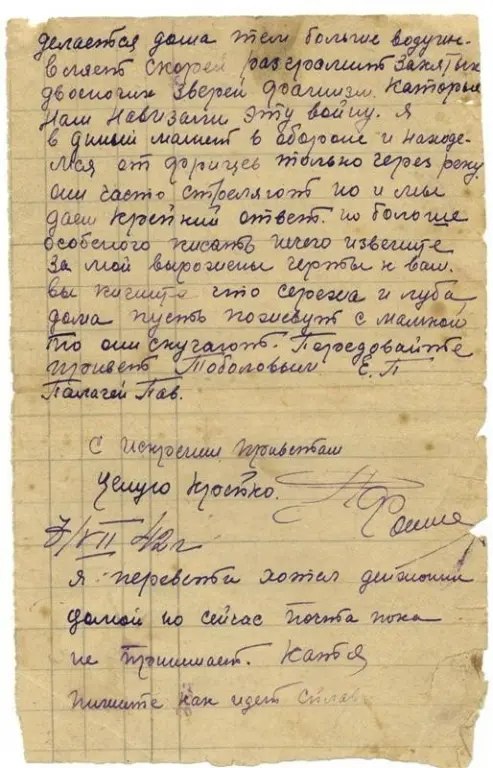 делается дома тем больше водушев-
вляет скорей разгромит заклятых
двоеногих зверей фашизм. Каторые
нам навизали эту войну. Я
в дный момент в обороне и находе-
мся от фрицев только через реку
они часто стреляют но и мы
даем крепкий ответ. но больше
особеного писать нечего извените
за мой вырожены черты к вам.
вы пишите что сережа и люба
дома пусть поживут с мамкой
то они скучают. Передовайте
привет Тоболовым Е. П
Палагей Пав.
с искреним приветом
целую крепко.
Фоша
7/VII 42 г
я перевети хотел деньжони
домой но сейчас почта пока
не принимает. Катя
пишите как идет сплав